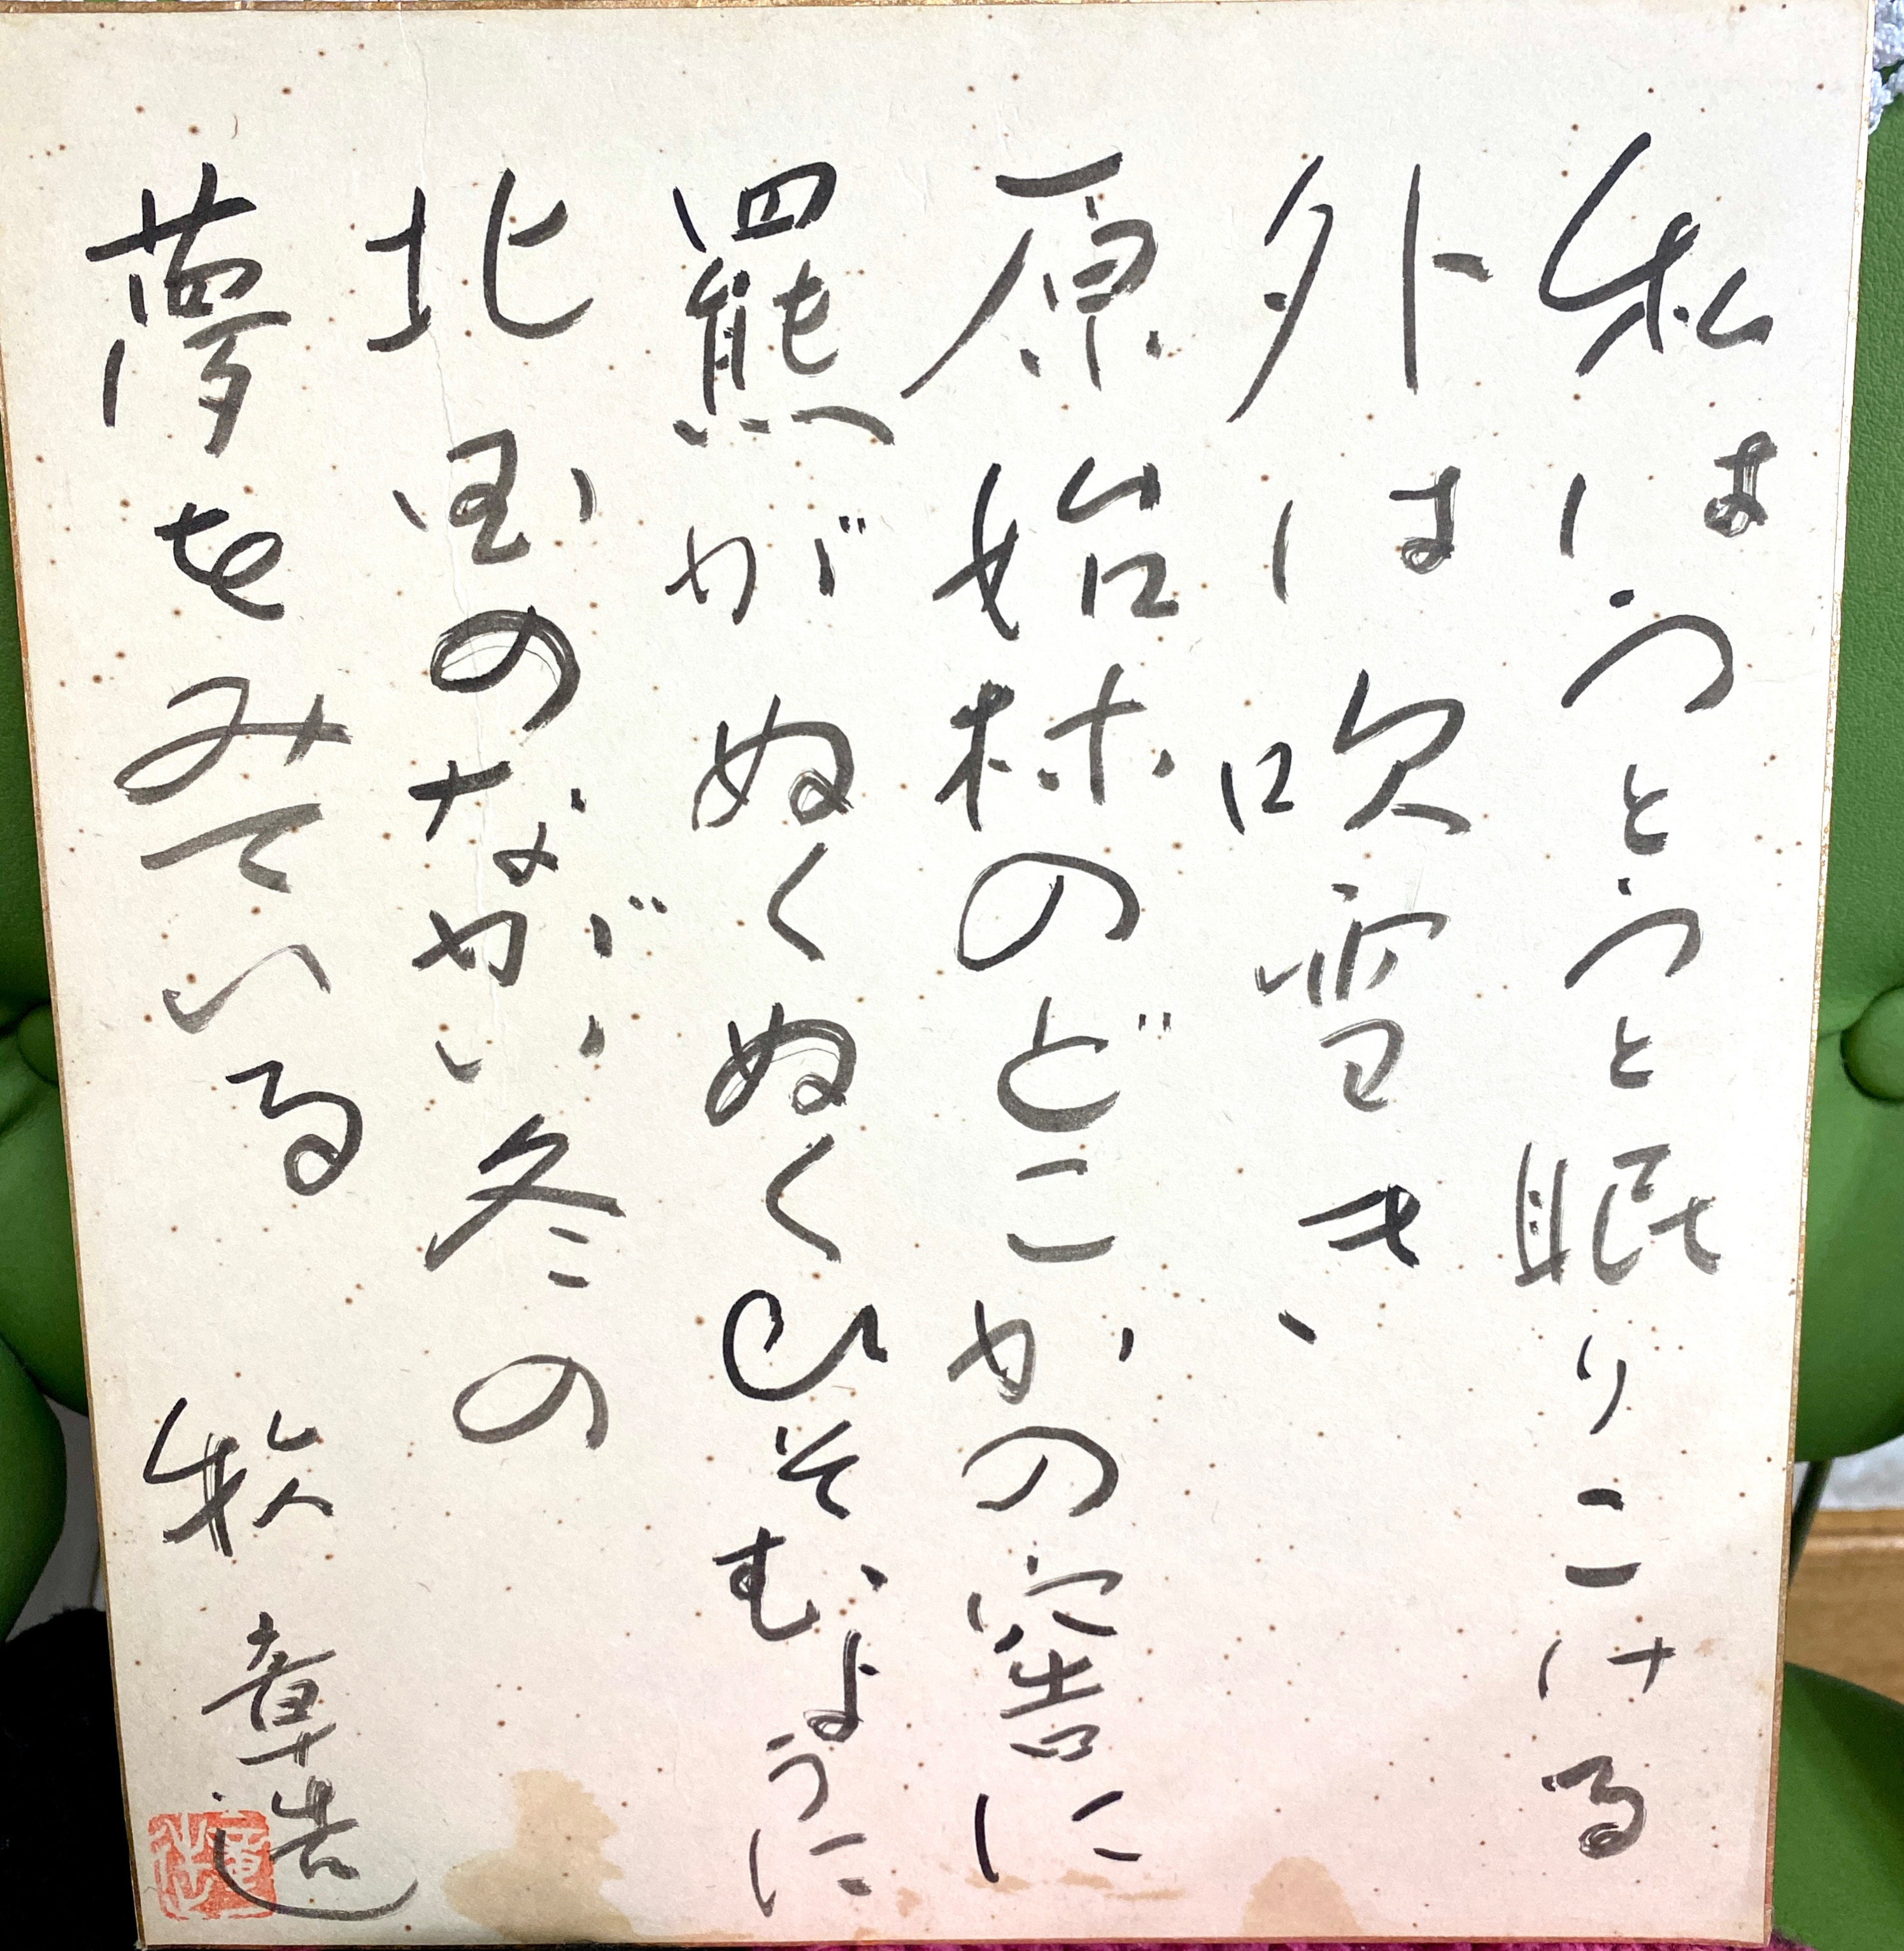 私はうとうと眠りこける
外は吹雪き、
原始林のどこかの窖に
羆がぬくぬくひそむように
北国のながい冬の
夢をみている
牧 章造